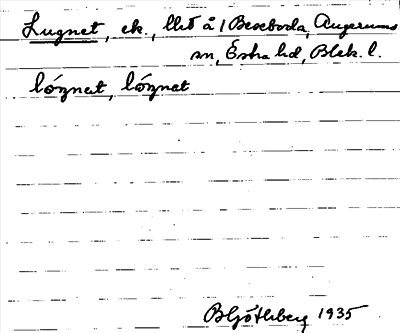 Lugnet, ek., llt å 1 Beseboda, Augerums
sn, Östra hd, Blek. l.
lóznet, lóznat
B Götlberg 1935